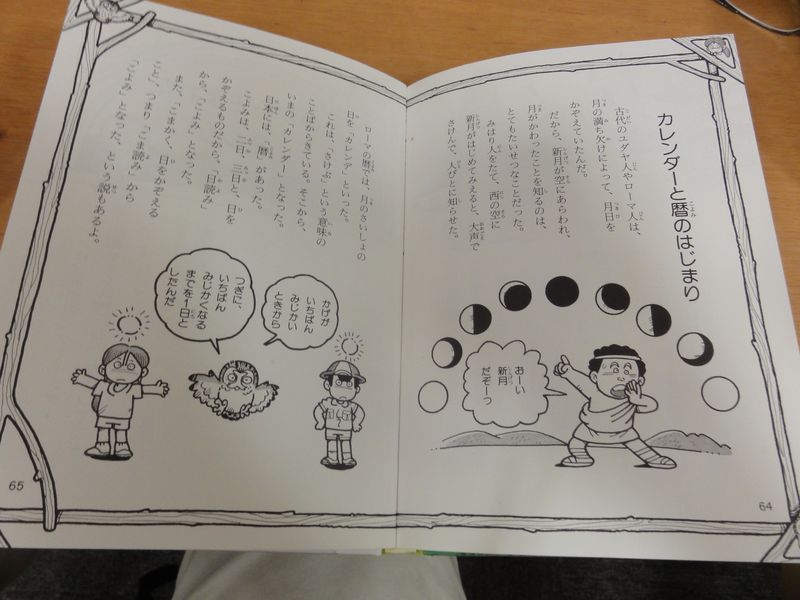 カレンダーと暦のはじまり
古代のユダヤ人やローマ人は、
月の満ち欠けによって、月日を
かぞえていたんだ。
だから、新月が空にあらわれ、
月がかわったことを知るのは、
とてもたいせつなことだった。
みはり人をたて、西の空に
新月がはじめてみえると、大声で
さけんで、人びとに知らせた。
おーい
新月
だぞーっ
64
ローマの暦では、月のさいしょの
日を「カレンデ」といった。
これは、「さけぶ」という意味の
ことばからきている。そこから、
いまの「カレンダー」となった。
日本には、「暦」があった。
こよみは、二日、三日と、日を
かぞえるものだから、「日読み」
から、「こよみ」となった。
また、「こまかく、日をかぞえる
こと、つまり「こま読み」から
「こよみ」となった、という説もあるよ。
かげが
いちばん
みじかい
ときから
つぎに、
いちばん
みじかくなる
までを1日と
したんだ
65